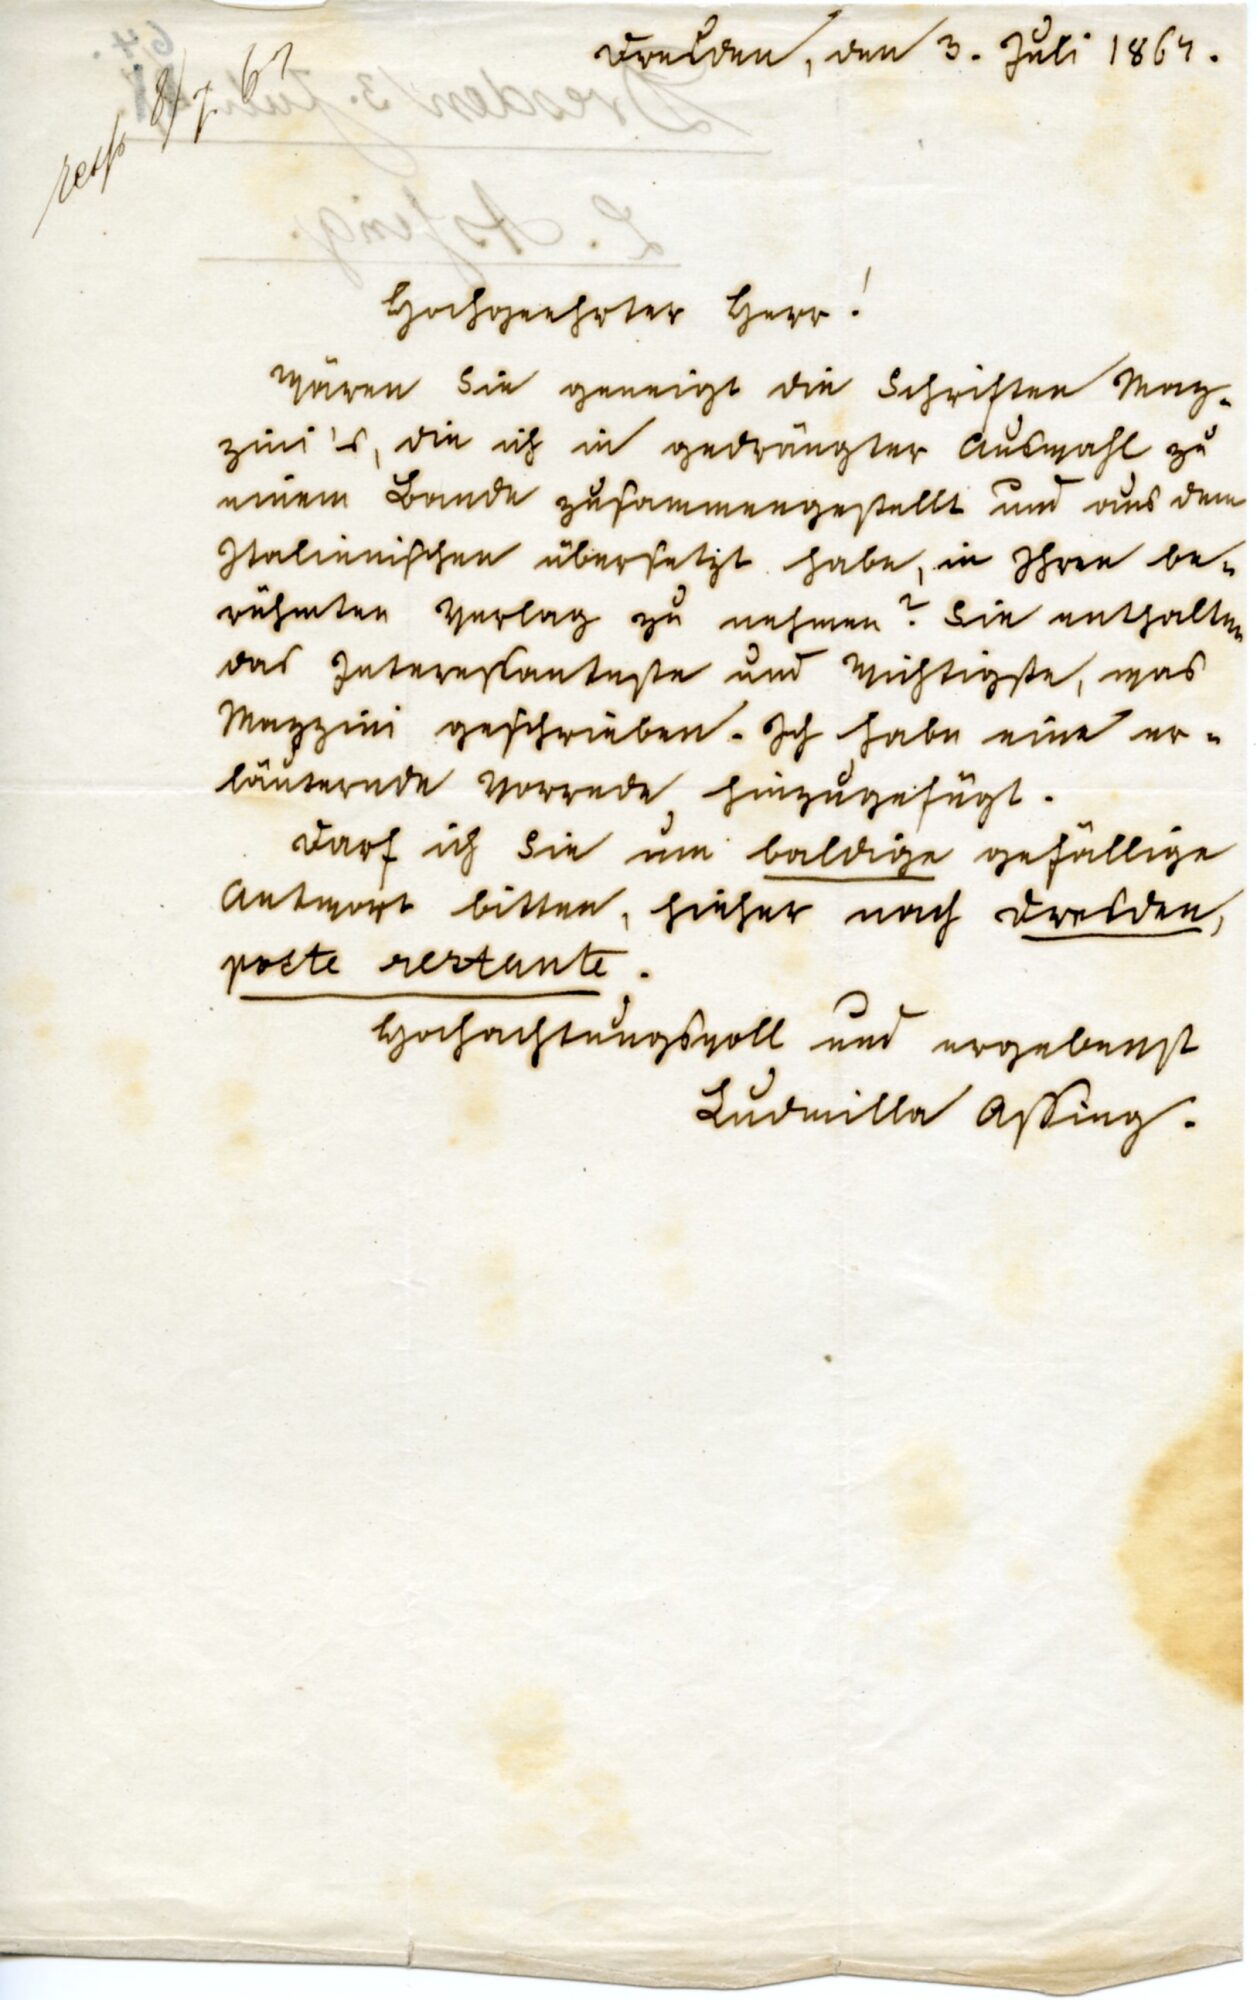 Dresden, den 3. Juli 1867.
resp 8/7 67
Hochgeehrter Herr!
Wären Sie geneigt die Schriften Maz-
zini's, die ich in gedrängter Auswahl zu
einem Bande zusammengestellt und aus dem
Italienischen übersetzt habe, in Ihren be-
rühmten Verlag zu nehmen? Sie enthalten
das Interessanteste und Wichtigste, was
Mazzini geschrieben. Ich habe eine er-
läuternde Vorrede hinzugefügt.
Darf ich Sie um baldige gefällige
Antwort bitten, hieher nach Dresden,
poste restante.
Hochachtungsvoll und ergebenst
Ludmilla Assing.
Dresden 3. Juli
L. Assing.